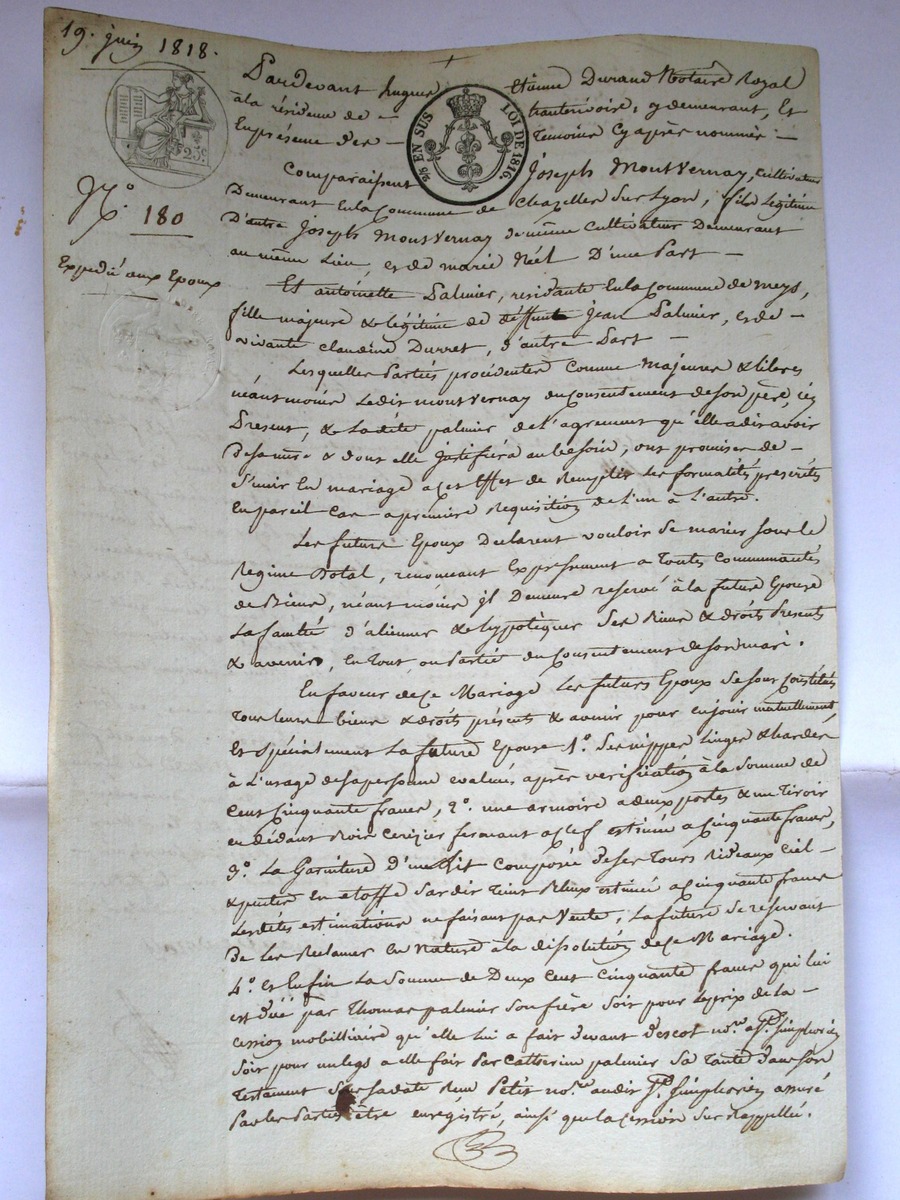 19. juin 1818.
Pardevant hugues Etienne Durand Notaire Royal
à la résidence de — hauterivoire, y demeurant, Et
En présence des — Temoins Cy après nommés —
25c
25/c EN SUS LOI DE 1816.
N.° 180
Expedié aux Epoux
Comparaissent Joseph Montvernay, cultivateur
Demeurant En la Commune de Chazelles Sur Lyon, fils Légitime
D'autre Joseph Montvernay de même Cultivateur Demeurant
au même Lieu, et de marie Néel D'une Part —
Et antoinette Palmier, residante En la Commune de meys,
fille majeure & légitime de deffunt Jean Palmier, et de —
vivante Claudine Durret, d'autre Part —
Lesquelles Parties procédentes Comme Majeures & libres
néantmoins Ledit montvernay du Consentement de Son père, ici
Present, & Ladite palmier de l'agrement qu'elle a dit avoir
De sa mère & dont elle Justifiera au besoin, ont promises de —
S'unir En mariage a cet Effet de Remplir Les formalités prescrites
En pareil Cas a première Requisition de L'un à L'autre.
Les futurs Epoux Déclarent vouloir Se marier Sous le
Regime Dotal, renonceant Expressement a Toutes Communautés
de Biens, néantmoins il Demeure reservé à la future Epouse
La faculté d'aliener & hypotèquer Ses Biens & droits Presents
& avenirs, En Tout, ou Partie du Consentement de Son mari.
En faveur de Ce Mariage Les futurs Epoux Se Sont Constitués
Tous leurs biens & droits présents & avenir pour en jouir mutuellement,
Et Spécialement La future Epouse 1.° Ses nippes Linges & hardes
à L'usage de Sa personne evalués après vérification à la Somme de
Cent Cinquante francs, 2.° une armoire a deux portes & un Tiroir
en dédant Bois Cerizier fermant a Clef estimée a Cinquante francs,
3.° La Garniture D'un Lit Composée de Ses Tours Rideaux Ciel —
& pentes En etoffe Teint Bleux estimée a Cinquante francs
Lesdites estimations ne faisant pas Vente, La future Se réservant
De Les Reclamer En Nature à la dissolution de Ce Mariage.
4.° et Enfin La Somme de Deux Cent Cinquante francs qui lui
est Düe par Thomas palmier Son frère Soit pour Le prix de la —
Cession mobilliaire qu'elle lui a fait devant Descot no.re a St. Simphorien
Soit pour un legs a elle fait Par Catherine palmier Sa Tante dans Son
Testament Sur Sa date Reçu Petit no.re audit St. Simphorien assuré
Par les Parties être enregistré, ainsi que la Cession Sus Rappellée.